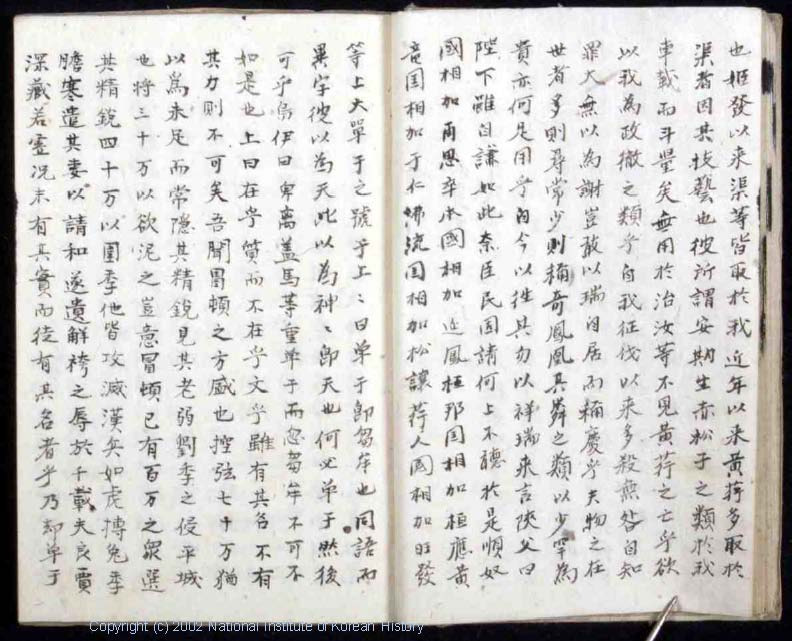 也姬發以来渠等皆取於我近年以来黃荇多取於
渠者因其技藝也彼所謂安期生赤松子之類於我
車載而斗量矣無用於治汝等不見黃荇之亡乎欲
以我為政徹之類乎自我征伐以来多殺無咎自知
罪大無以為謝豈敢以瑞自居而稱慶乎夫物之在
世者多則尋常少則稱奇鳳凰其之類以少罕為
貴亦何足用乎自今以往其勿以祥瑞来言陜父曰
陛下雖自謙如此奈臣民固請何上不聽於是順奴
國相加再思卒本國相加延鳳桓那国相加桓應黃
竜国相加于仁沸流国相加松讓荇人國相加旺發
等上大單于之號于上〻曰单于卽芻牟也同語而
異字彼以為天此以為神〻卽天也何必单于然後
可乎烏伊曰卑離盖馬等重单于而忽芻牟不可不
如是也上曰在乎質而不在乎文乎雖有其名不有
其力則不可矣吾聞冒頓之方盛也控弦七十万猶
以為未足而常隱其精銳見其老弱劉季之侵平城
也将三十万以欲泥之豈意冒頓已有百万之衆選
其精銳四十万以圍季他皆攻滅漢兵如虎搏兔季
膽寒遣其妻以請和遂遺解袴之辱於千載夫良賈
深藏若虛况未有其實而徒有其名者乎乃却单于
Copyright (c) 2002 National Institute of Korean History